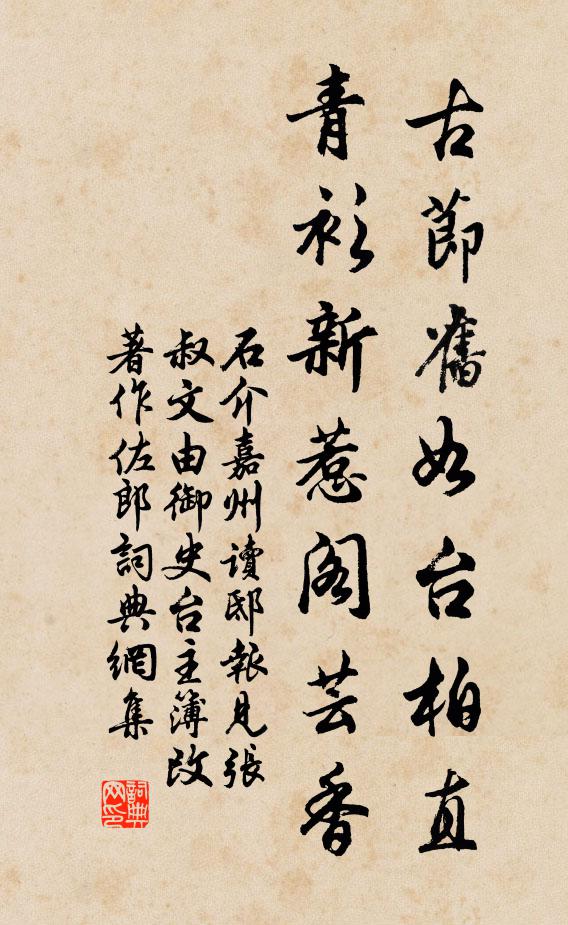 古節舊如台柏直
青衫新惹阁芸香
石介嘉州讀邸報見張
叔文由御史台主簿改
著作佐郎詞典網集
詞典网印